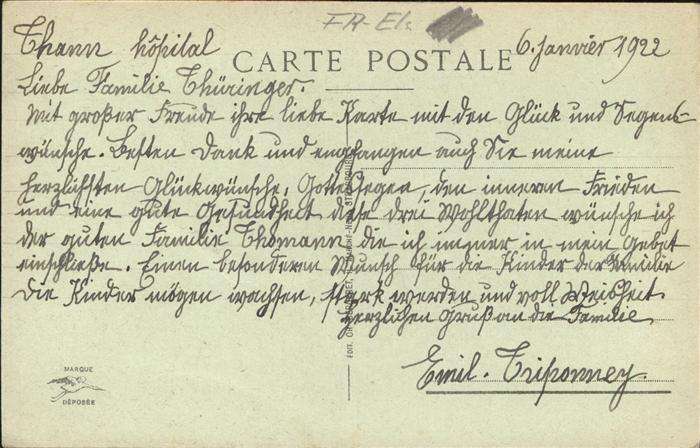 FR-El.
Thann hôpital
CARTE POSTALE
6. Janvier 1922
Liebe Familie Thüringer.
Mit großer Freude ihre liebe Karte mit den Glück und Segens-
wünsche. Besten Dank und empfangen auch Sie meine
herzlichsten Glückwünsche, Gottes Segen, den inneren Frieden
und eine gute Gesundheit diese drei Wohlthaten wünsche ich
der guten Familie Thomann die ich immer in mein Gebet
einschließe. Einen besonderen Wunsch für die Kinder der Familie
die Kinder mögen wachsen, stark werden und voll Weisheit.
Herzlichen Gruß an die Familie
Emil. Triponney.
MARQUE
DÉPOSÉE